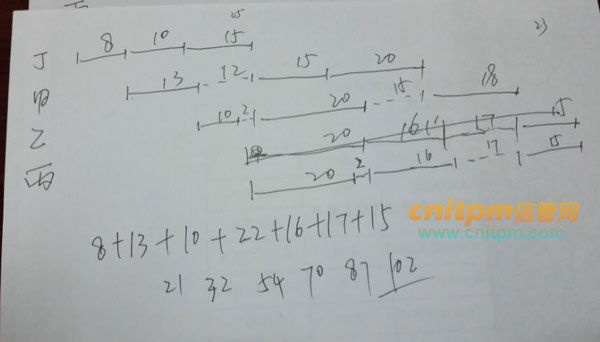 25
8 10 15
23
丁
13 12 15 20
甲
10 2 20 15 18
乙
20 16 17 15
丙
20 2 16 17 15
cnitpm信管网
www.cnitpm.com
8+13+10+22+16+17+15
21 32 54 70 87 102